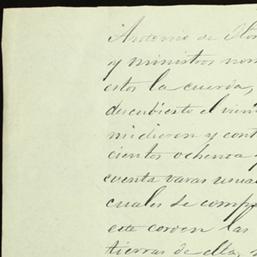 Antonio de Flo
y ministros nom
estos la cuerda,
descubierto el vien
midieron y cont
cientos ochenta y
cuenta varas usua
cuales se comp
este corden las
tierras de dha,